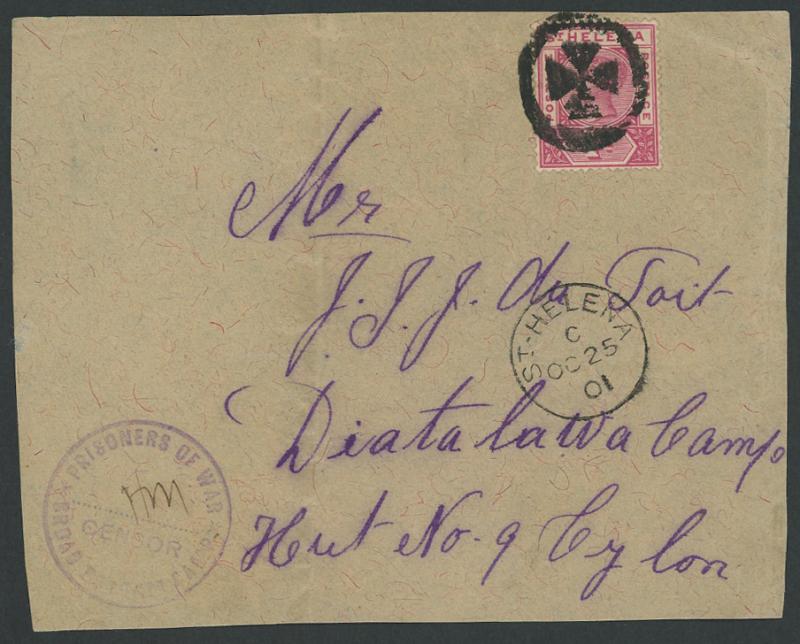 ST HELENA
POSTAGE
POSTAGE
Mr
J. J. J. du Toit
ST. HELENA
C
OC 25
01
Diatalawa Camp
Hut No. 9 Cylon
PRISONERS OF WAR
HM
CENSOR
BROAD BOTTOM CAMP